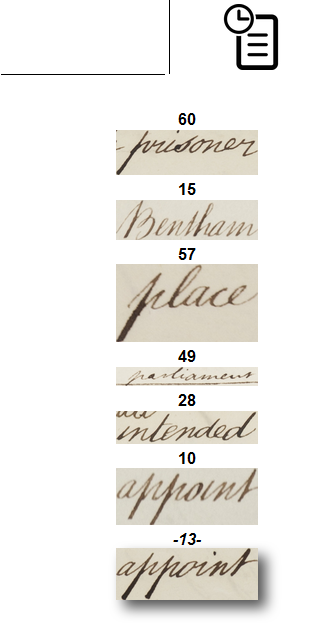 60
prisoner
15
Bentham
57
place
49
parliament
28
intended
10
appoint
-13-
appoint